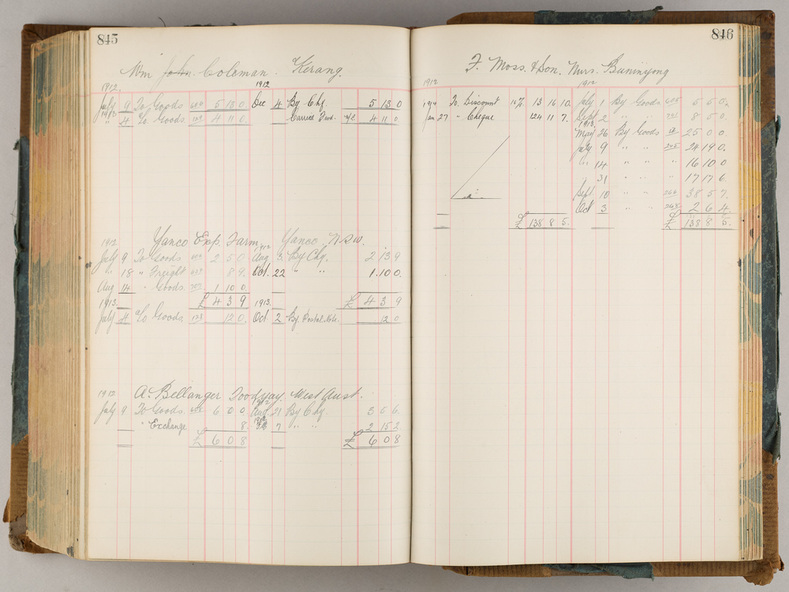 845
Wm John Coleman. Kerang.
1912 1912
July 9 To Goods 5 13 0 Dec 4 By Chq 5 13 0
1913
" 4 To Goods 4 11 0 Carried Fwd. 4 11 0
1912 Yanco Exp. Farm Yanco N.S.W.
July 9 To Goods 2 5 0 Aug 3 By Chq. 2 13 9
" 18 " Freight 8 9 Oct. 22 " " 1. 10 0.
Aug 14 " Goods 1 10 0
£ 4 3 9 £ 4 3 9
1913 1913
July 4 To Goods 12 0 Oct 2 By Postal Note 12 0
1912 A. Bellanger Toodyay. West Aust.
July 9 To Goods 6 0 0 Aug 21 By Chq
" Exchange 8 7 " " 2 15 2
£ 6 0 8 £ 6 0 8
846
F. Moss. & Son. Nurs. Buninyong
1912 1912
To Discount 10% 13 16 10 July 1 By Goods 5 5 0
Jan 27 " Cheque 124 11 7. Sept 2 " " 8 5 0
1913
May 26 By Goods 25 0 0
July 9 " " 24 19 0
" 14 " " " 16 10 0
31 " " " 17 17 6
Sept 10 " " 38 5 7
Oct 3 " " 2 6 4
£ 138 8 5. £ 138 8 5.